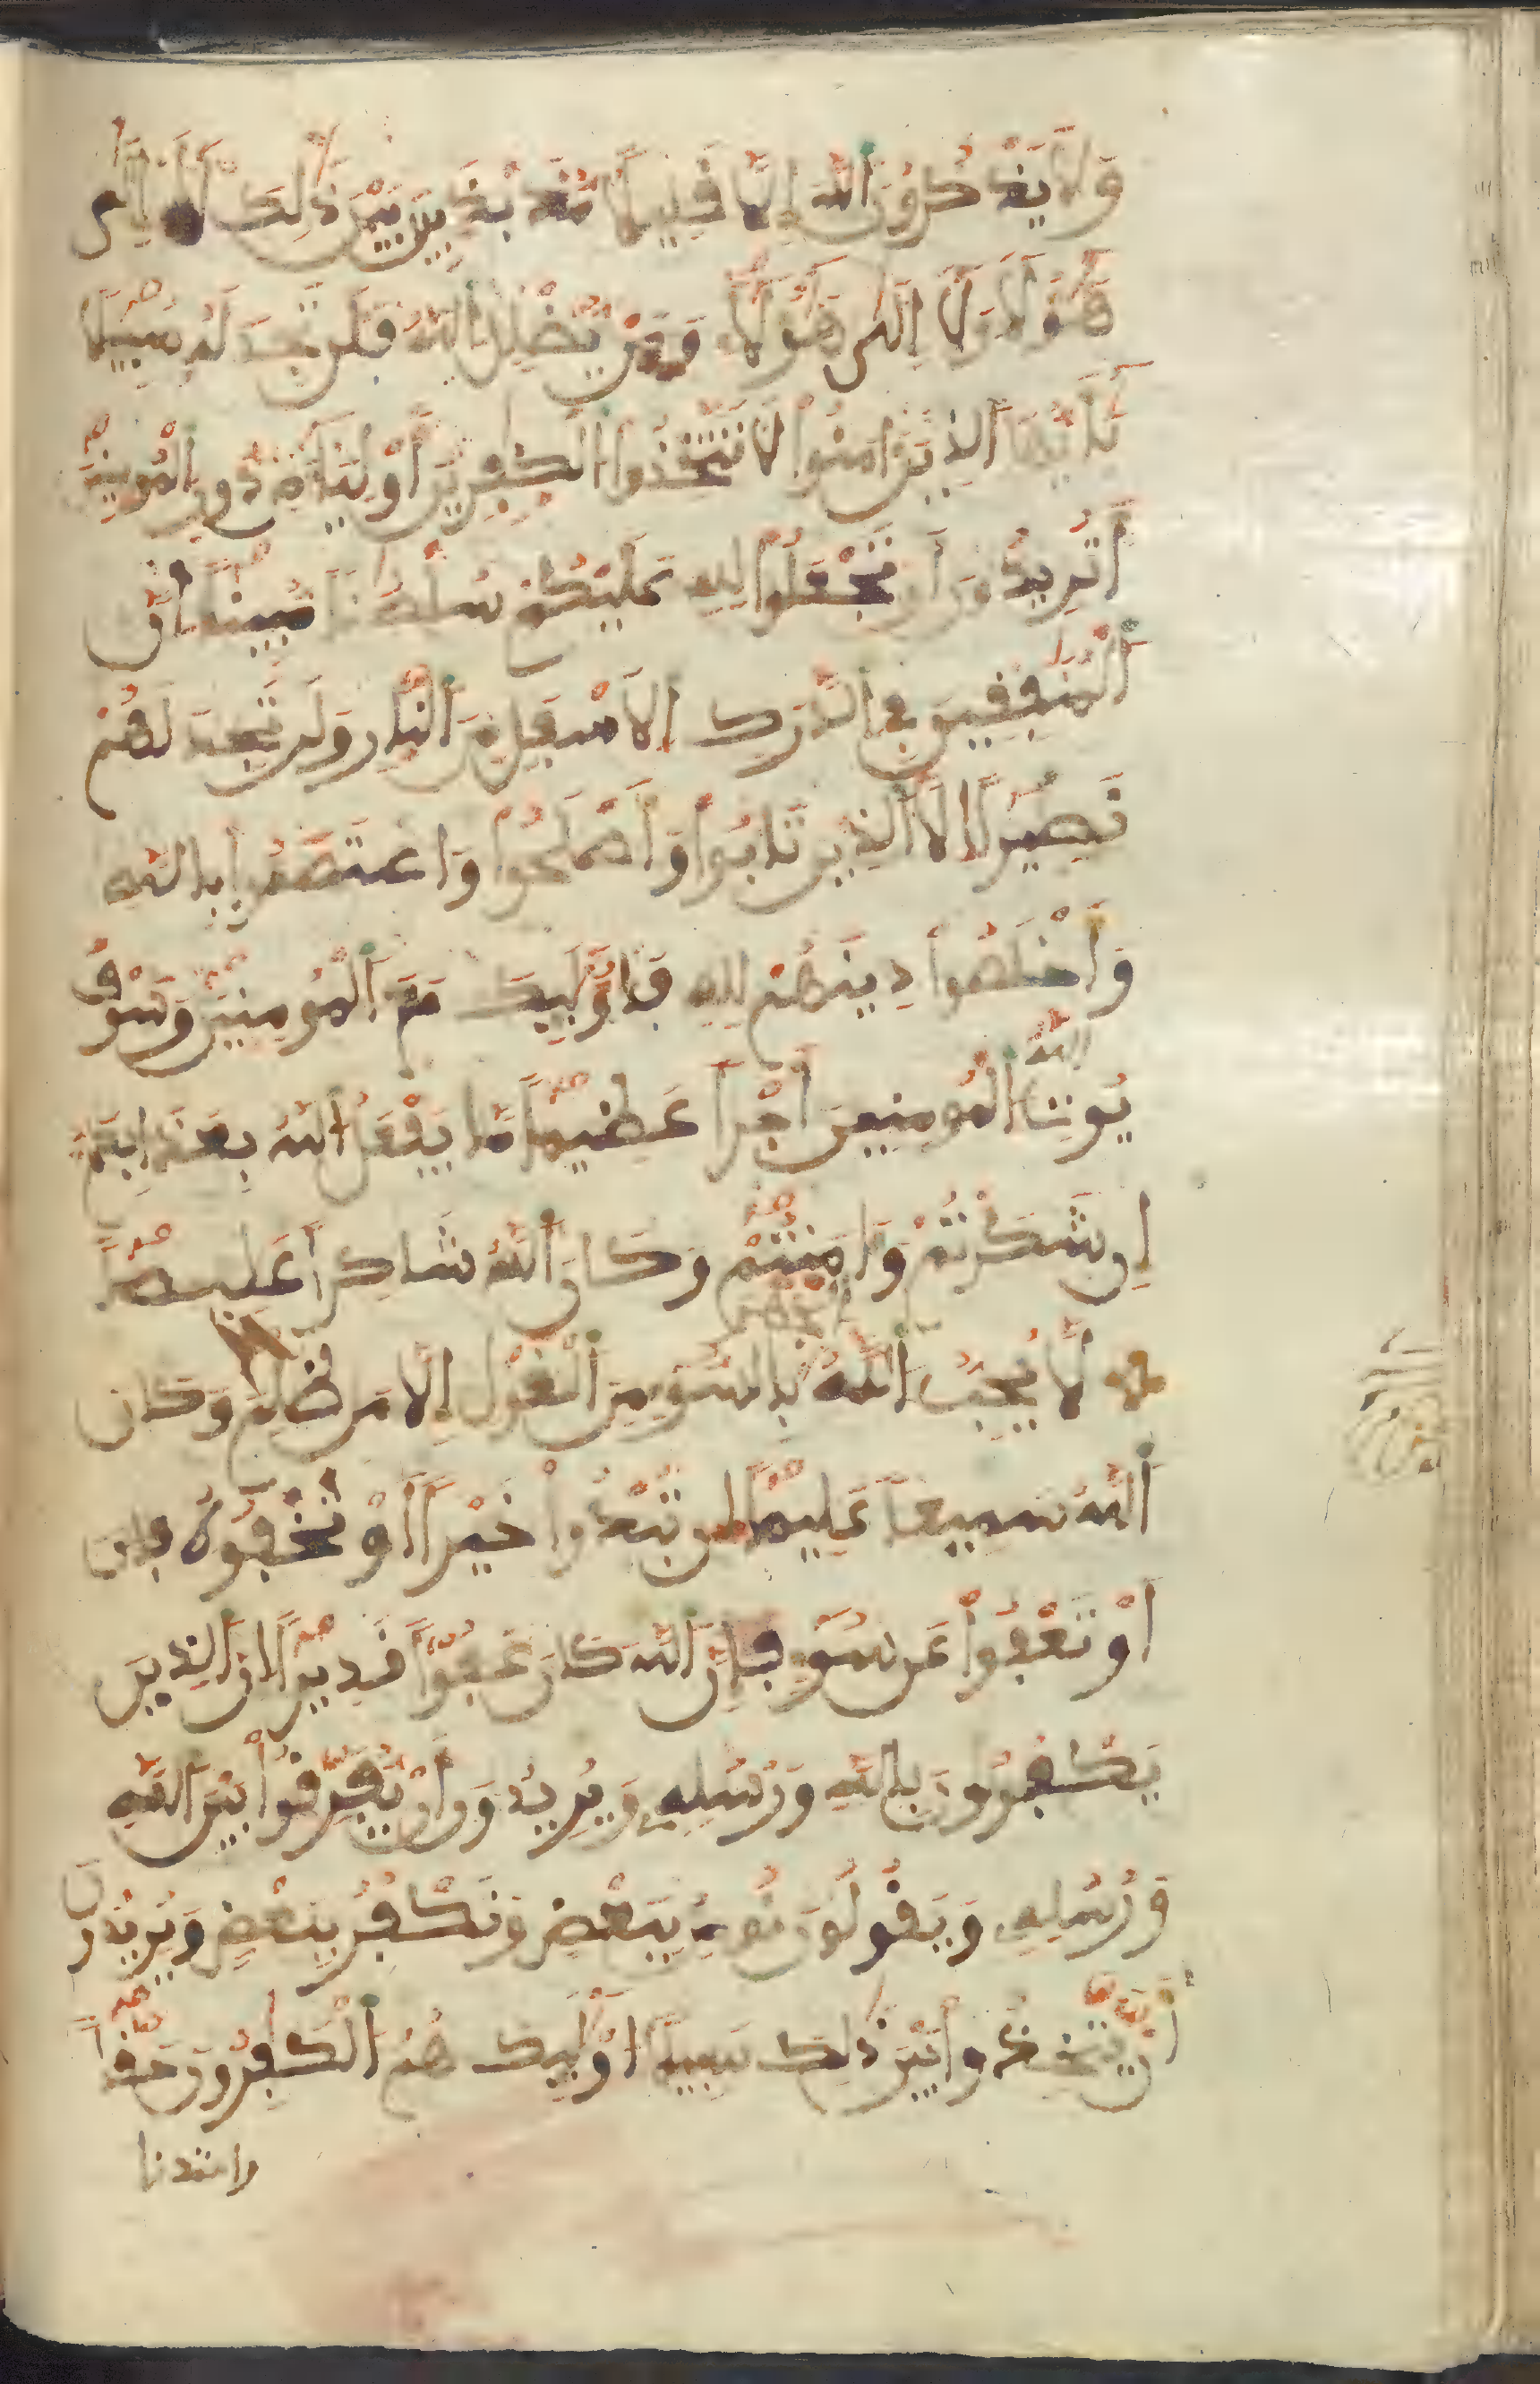 وَلَا يَذْكُرُونَ اَللَّهَ إِلَّا قَلِيلًا مُّذَبْذَبِينَ بَيْنَ ذَٰلِكَ لَا إِلَىٰ
هَٰؤُلَاءِ وَلَا إِلَىٰ هَٰؤُلَاءِ وَمَنْ يُّضْلِلِ اِللَّهُ فَلَن تَجِدَ لَهُ سَبِيلًا
يَٰأَيُّهَا اَلذِينَ ءَامَنُواْ لَا تَتَّخِذُواْ اُلْكَٰفِرِينَ أَوْلِيَاءَ مِن دُونِ اِلْمُومِنِينَ
أَتُرِيدُونَ أَن تَجْعَلُواْ لِلهِ عَلَيْكُمْ سُلْطَٰنًا مُّبِينًا إِنَّ
اَلْمُنَٰفِقِينَ فِي اِلدَّرَكِ اِلَاسْفَلِ مِنَ اَلنَّارِ وَلَن تَجِدَ لَهُمْ
نَصِيرًا إِلَّا اَلذِينَ تَابُواْ وَأَصْلَحُواْ وَاعْتَصَمُواْ بِاللَّهِ
وَأَخْلَصُواْ دِينَهُمْ لِلهِ فَأُوْلَٰئِكَ مَعَ اَلْمُومِنِينَ وَسَوْفَ
يُوتِ اِللَّهُ اُلْمُومِنِينَ أَجْرًا عَظِيمًا مَّا يَفْعَلُ اُللَّهُ بِعَذَابِكُمْ
إِن شَكَرْتُمْ وَءَامَنتُمْ وَكَانَ اَللَّهُ شَاكِرًا عَلِيمًا
لَّا يُحِبُّ اُللَّهُ اُلْجَهْرَ بِالسُّوءِ مِنَ اَلْقَوْلِ إِلَّا مَن ظُلِمَ وَكَانَ
اَللَّهُ سَمِيعًا عَلِيمًا إِن تُبْدُواْ خَيْرًا أَوْ تُخْفُوهُ
أَوْ تَعْفُواْ عَن سُوءٍ فَإِنَّ اَللَّهَ كَانَ عَفُوًّا قَدِيرًا إِنَّ اَلذِينَ
يَكْفُرُونَ بِاللَّهِ وَرُسُلِهِ وَيُرِيدُونَ أَنْ يُّفَرِّقُواْ بَيْنَ اَللَّهِ
وَرُسُلِهِ وَيَقُولُونَ نُومِنُ بِبَعْضٍ وَنَكْفُرُ بِبَعْضٍ وَيُرِيدُونَ
أَنْ يَّتَّخِذُواْ بَيْنَ ذَٰلِكَ سَبِيلًا أُوْلَٰئِكَ هُمُ اُلْكَٰفِرُونَ حَقًّا
واعتدنا